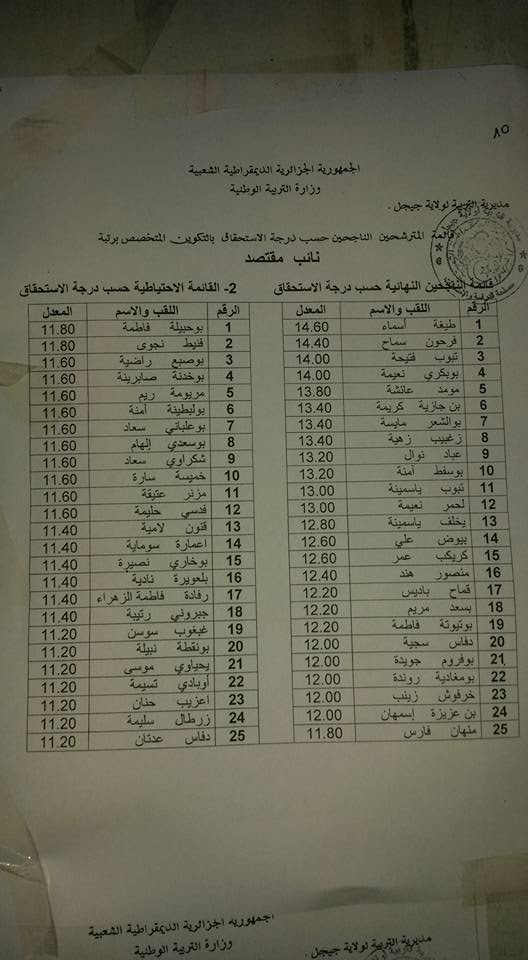 ٨٥
الجمهورية الجزائرية الديمقراطية الشعبية
وزارة التربية الوطنية
مديرية التربية لولاية جيجل.
قائمة المترشحين الناجحين حسب درجة الاستحقاق بالتكوين المتخصص برتبة
نائب مقتصد
قائمة الناجحين النهائية حسب درجة الاستحقاق
الرقم اللقب والاسم المعدل
1 طيغة أسماء 14.60
2 فرحون سماح 14.40
3 تبوب فتيحة 14.00
4 بوبكري نعيمة 14.00
5 مومد عائشة 13.80
6 بن جازية كريمة 13.40
7 بوالشعر مايسة 13.40
8 زغبيب زهية 13.40
9 عباد نوال 13.20
10 بوسفط آمنة 13.20
11 تبوب ياسمينة 13.00
12 لحمر نعيمة 13.00
13 يخلف ياسمينة 12.80
14 بيوض علي 12.60
15 كريكب عمر 12.60
16 منصور هند 12.40
17 قماح باديس 12.20
18 بسعد مريم 12.20
19 بوتيوتة فاطمة 12.20
20 دفاس سجية 12.00
21 بوفروم جويدة 12.00
22 بومغادية روندة 12.00
23 خرفوش زينب 12.00
24 بن عزيزة إسمهان 12.00
25 منهان فارس 11.80
2- القائمة الاحتياطية حسب درجة الاستحقاق
الرقم اللقب والاسم المعدل
1 بوحبيلة فاطمة 11.80
2 فنيط نجوى 11.80
3 بوصبع راضية 11.60
4 بوخدنة صابرينة 11.60
5 مريومة ريم 11.60
6 بولبطينة آمنة 11.60
7 بوعلباني سعاد 11.60
8 بوسعدي إلهام 11.60
9 شكراوي سعاد 11.60
10 خميسة سارة 11.60
11 مزنر عتيقة 11.60
12 قدسي حليمة 11.60
13 قنون لامية 11.40
14 اعمارة سوماية 11.40
15 بوخاري نصيرة 11.40
16 بلعويرة نادية 11.40
17 رفادة فاطمة الزهراء 11.40
18 جبروني رتيبة 11.40
19 غبغوب سوسن 11.20
20 بونقطة نبيلة 11.20
21 يحياوي موسى 11.20
22 أوبادي تسيمة 11.20
23 أعزيب حنان 11.20
24 زرطال سليمة 11.20
25 دفاس عدتان 11.20
الجمهورية الجزائرية الديمقراطية الشعبية
وزارة التربية الوطنية
مديرية التربية لولاية جيجل.